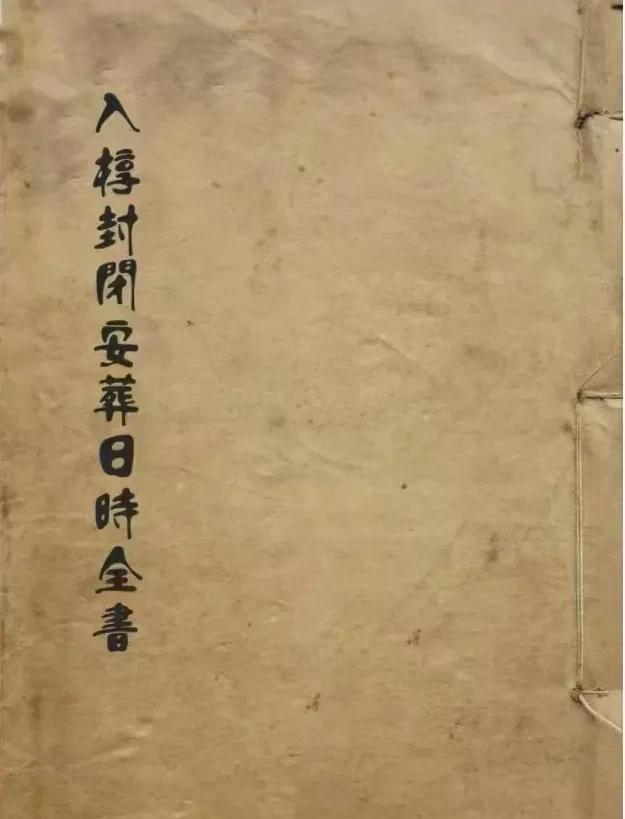 入椁封閉安葬日時全書